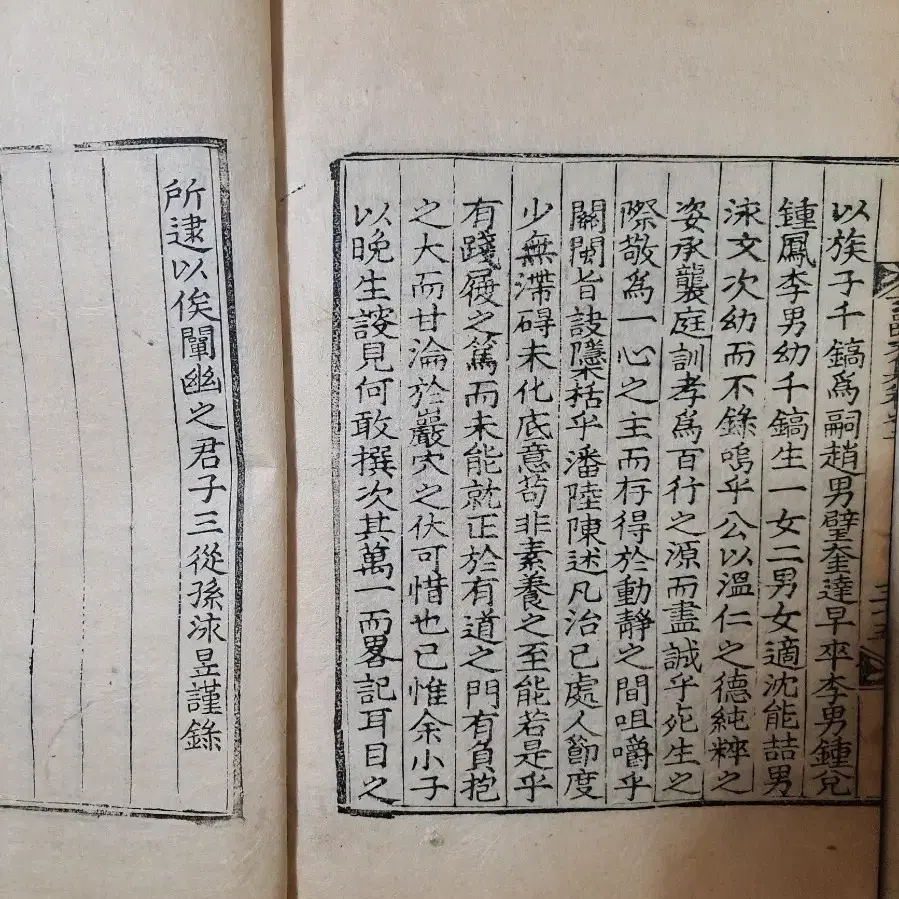 以族子千鎬爲嗣趙男璧奎達早卒李男鍾兌
鍾鳳李男幼千鎬生一女二男女適沈能喆男
泳文次幼而不錄嗚乎公以溫仁之德純粹之
姿承襲庭訓孝爲百行之源而盡誠乎死生之
際敬爲一心之主而存得於動靜之間咀嚼乎
關閩旨訣隱栝乎潘陸陳述凡治己處人節度
少無滯碍未化底意苟非素養之至能若是乎
有踐履之篤而未能就正於有道之門有負抱
之大而甘淪於巖穴之伏可惜也已惟余小子
以晩生謏見何敢撰次其萬一而畧記耳目之
所逮以俟闡幽之君子三從孫泳昱謹錄